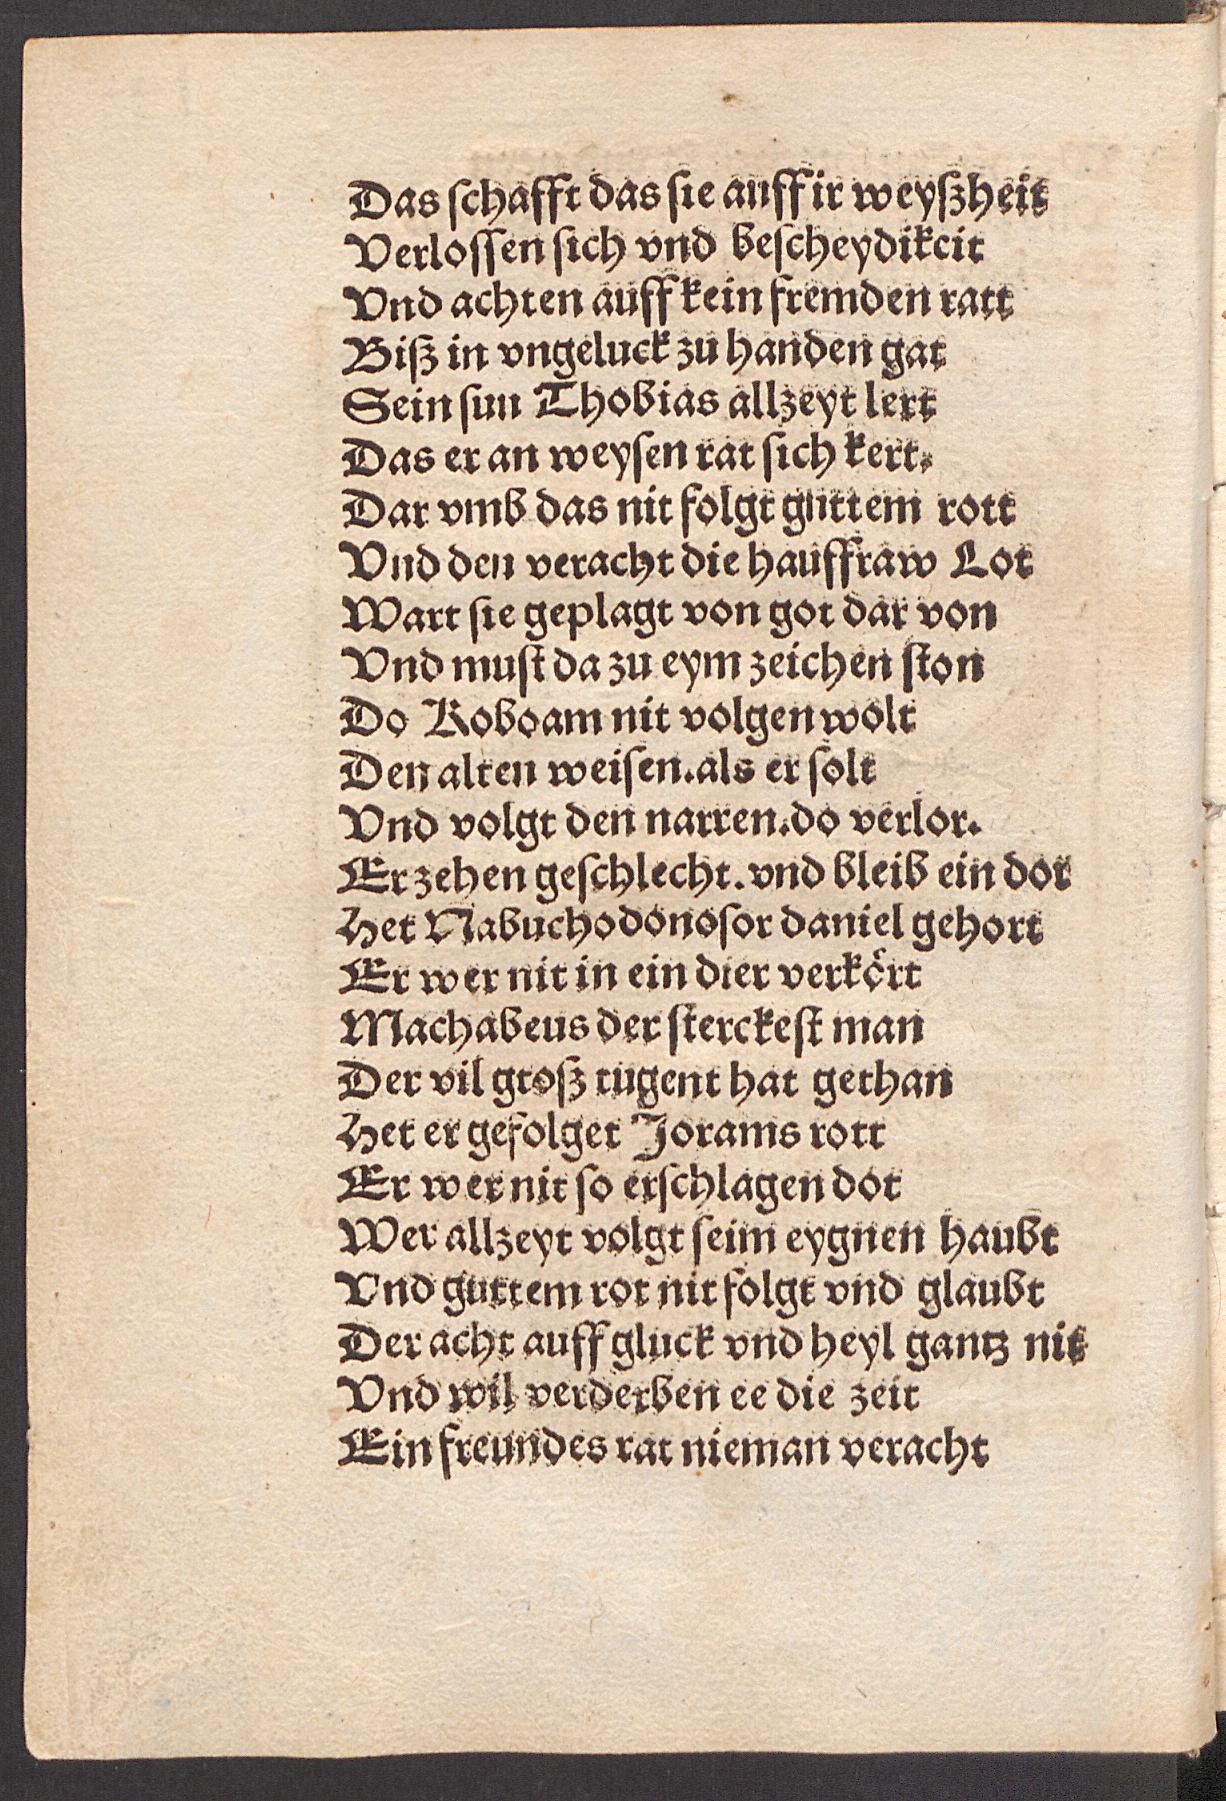 Das ſchafft das ſie auff ir weyſzheit
Verloſſen ſich vnd beſcheydikcit
Vnd achten auff kein fremden ratt
Biſz in vngeluck zu handen gat
Sein ſun Thobias allzeyt lert
Das er an weyſen rat ſich kert.
Dar vmb das nit folgt guttem rott
Vnd den veracht die hauffraw Lot
Wart ſie geplagt von got dar von
Vnd muſt da zu eym zeichen ſton
Do Roboam nit volgen wolt
Den alten weiſen.als er ſolt
Vnd volgt den narren.do verlor.
Er zehen geſchlecht.vnd bleib ein dor
Het Nabuchodonoſor daniel gehort
Er wer nit in ein dier verkört
Machabeus der ſterckeſt man
Der vil groſz tugent hat gethan
Het er gefolget Jorams rott
Er wer nit ſo erſchlagen dot
Wer allzeyt volgt ſeim eygnen haubt
Vnd guttem rot nit folgt vnd glaubt
Der acht auff gluck vnd heyl gantz nit
Vnd wil verderben ee die zeit
Ein freundes rat nieman veracht